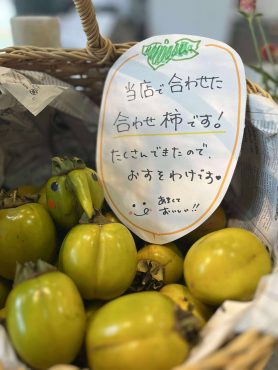 当店で合わせた
合わせ柿です!
たくさんできたので、
おすそわけです♥
あまくて
おいしい!!